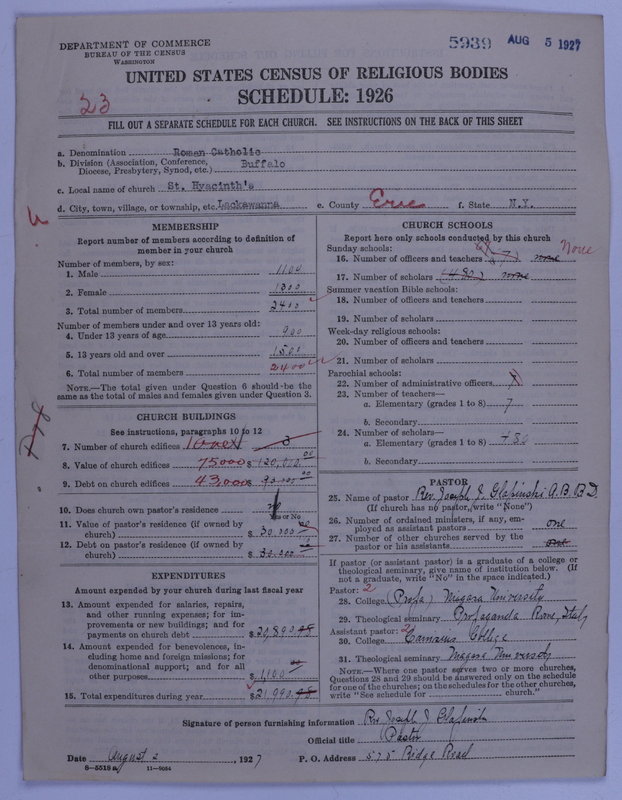 DEPARTMENT OF COMMERCE
BUREAU OF THE CENSUS
WASHINGTON
5939 AUG 5 1927
UNITED STATES CENSUS OF RELIGIOUS BODIES
SCHEDULE: 1926
23
FILL OUT A SEPARATE SCHEDULE FOR EACH CHURCH. SEE INSTRUCTIONS ON THE BACK OF THIS SHEET
a. Denomination Roman Catholic
b. Division (Association, Conference, Diocese, Presbytery, Synod, etc.) Buffalo
c. Local name of church St. Hyacinth's
d. City, town, village, or township, etc. Lackawanna e. County Erie f. State N.Y.
MEMBERSHIP
Report number of members according to definition of
member in your church
Number of members, by sex:
1. Male 1104
2. Female 1300
3. Total number of members 2400
Number of members under and over 13 years old:
4. Under 13 years of age 900
5. 13 years old and over 1500
6. Total number of members 2400
NOTE.—The total given under Question 6 should be the
same as the total of males and females given under Question 3.
CHURCH BUILDINGS
See instructions, paragraphs 10 to 12
7. Number of church edifices 1 one 3
8. Value of church edifices 75000 $120,000.00
9. Debt on church edifices 43,000 $ 90.000 00
10. Does church own pastor's residence
Yes or No
11. Value of pastor's residence (if owned by
church) $ 30.000
12. Debt on pastor's residence (if owned by
church) $ 30.000
EXPENDITURES
Amount expended by your church during last fiscal year
13. Amount expended for salaries, repairs,
and other running expenses; for im-
provements or new buildings; and for
payments on church debt $20,890.98
14. Amount expended for benevolences, in-
cluding home and foreign missions; for
denominational support; and for all
other purposes $1,100.00
15. Total expenditures during year $21,990.98
CHURCH SCHOOLS
Report here only schools conducted by this church
Sunday schools: None
16. Number of officers and teachers 7 none
17. Number of scholars 480 none
Summer vacation Bible schools:
18. Number of officers and teachers
19. Number of scholars
Week-day religious schools:
20. Number of officers and teachers
21. Number of scholars
Parochial schools:
22. Number of administrative officers
23. Number of teachers—
a. Elementary (grades 1 to 8) 7
b. Secondary
24. Number of scholars—
a. Elementary (grades 1 to 8) 480
b. Secondary
PASTOR
25. Name of pastor Rev. Joseph J. Glapinski A.B. B.D.
(If church has no pastor, write "None")
26. Number of ordained ministers, if any, em-
ployed as assistant pastors one
27. Number of other churches served by the
pastor or his assistants one
If pastor (or assistant pastor) is a graduate of a college or
theological seminary, give name of institution below. (If
not a graduate, write "No" in the space indicated.)
Pastor: 2
28. College Niagara University
29. Theological seminary Propaganda Rome, Italy
Assistant pastor: 2
30. College Canisius College
31. Theological seminary Niagara University
NOTE.—Where one pastor serves two or more churches,
Questions 28 and 29 should be answered only on the schedule
for one of the churches; on the schedules for the other churches,
write "See schedule for church."
Signature of person furnishing information Rev Joseph J Glapinski
Official title Pastor
Date August 2, 1927 P. O. Address 575 Ridge Road
8-5518 a 11-9054